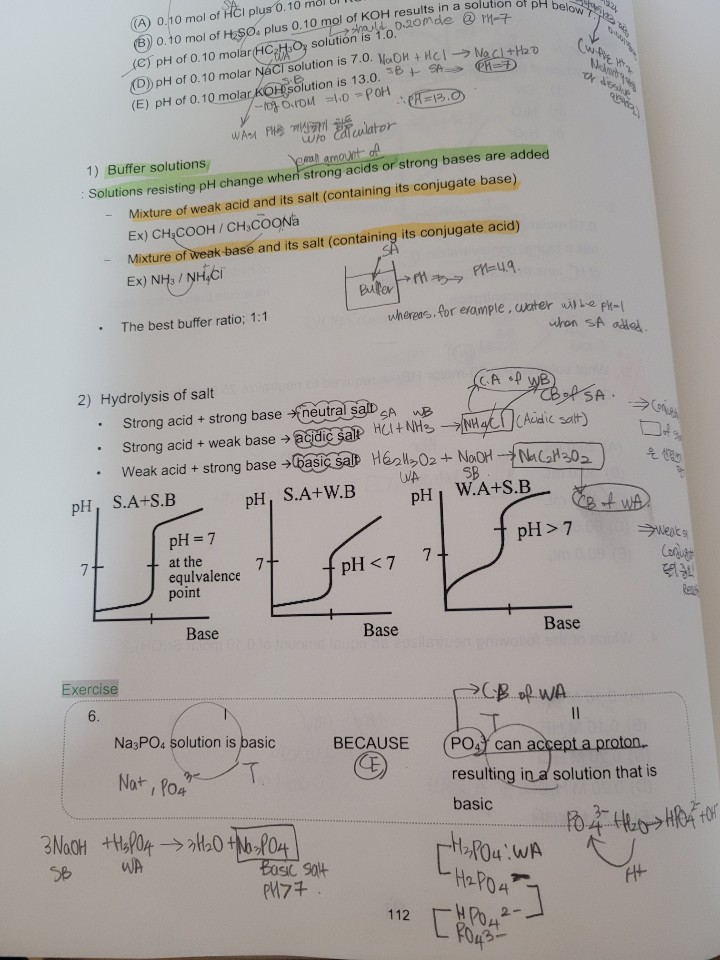 (A) 0.10 mol of HCl plus 0.10 mol
SA
(B) 0.10 mol of H₂SO₄ plus 0.10 mol of KOH results in a solution of pH below 7.
should 0.20mole @ PH=7
(C) pH of 0.10 molar HC₂H₃O₂ solution is 1.0.
WA
(D) pH of 0.10 molar NaCl solution is 7.0. NaOH + HCl → NaCl+H2O
SB + SA → PH=7
(E) pH of 0.10 molar KOH solution is 13.0.
S.B
-log 0.10M =1.0 = POH ∴ PH=13.0
WA의 PH
w/o Calculator
1) Buffer solutions
small amount of
: Solutions resisting pH change when strong acids or strong bases are added
– Mixture of weak acid and its salt (containing its conjugate base)
Ex) CH₃COOH / CH₃COONa
– Mixture of weak base and its salt (containing its conjugate acid)
Ex) NH₃ / NH₄Cl
SA
Buffer → PH 5 → PH=4.9.
whereas, for example, water will be pH=1
when SA added.
• The best buffer ratio; 1:1
2) Hydrolysis of salt
C.A of WB
CB of SA.
• Strong acid + strong base → neutral salt
SA WB
• Strong acid + weak base → acidic salt HCl+NH3 → NH4Cl (Acidic salt)
• Weak acid + strong base → basic salt HC2H3O2 + NaOH → NaC2H3O2
WA SB
CB of WA
⇒ Weak
pH S.A+S.B
7
pH = 7
at the
equlvalence
point
Base
pH S.A+W.B
7
pH < 7
Base
pH W.A+S.B
7
pH > 7
Base
Exercise
→ C.B of WA
6. I II
Na₃PO₄ solution is basic BECAUSE PO₄³⁻ can accept a proton,
resulting in a solution that is
basic
Na+, PO4³⁻ T.
CE
T
PO4³⁻ + H2O → HPO4²⁻ + OH
H+
3NaOH + H3PO4 → 3H2O + Na3PO4
SB WA Basic salt
PH>7.
H3PO4: WA
H2PO4⁻
HPO4²⁻
PO4³⁻
112